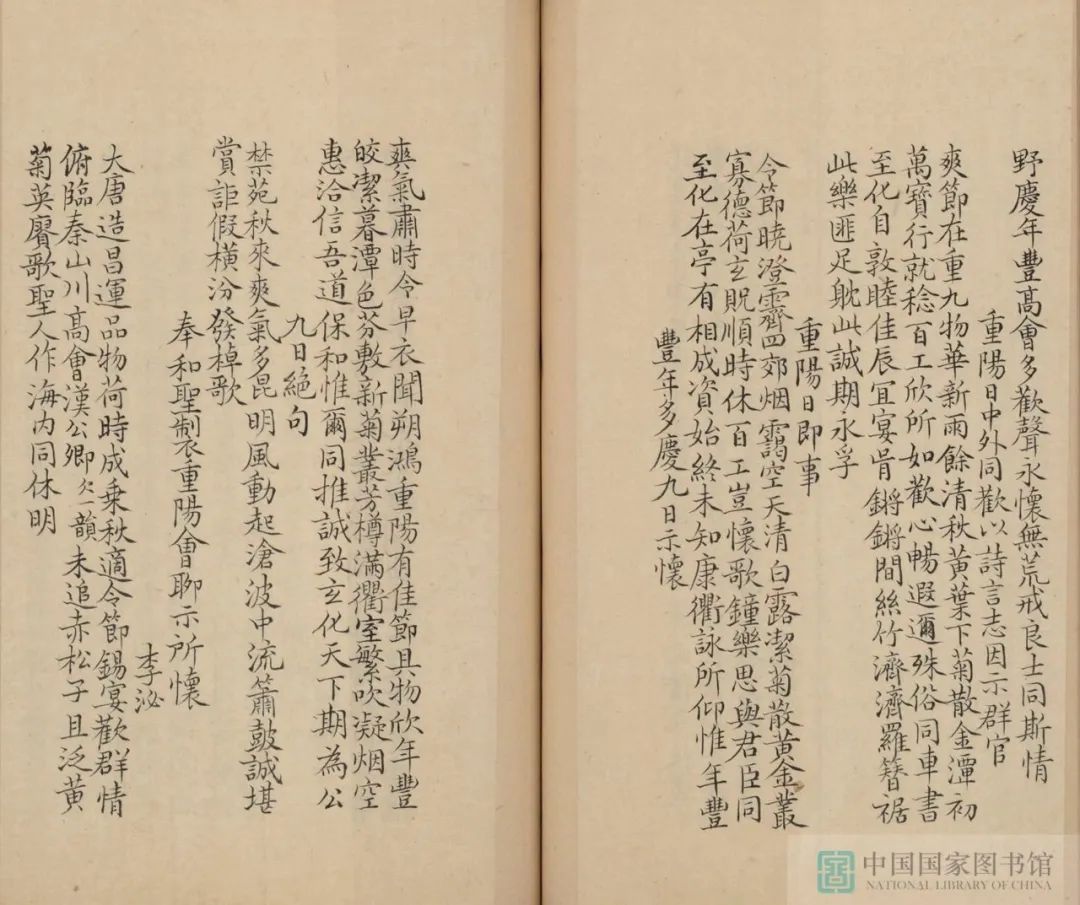 野慶年豐髙會多歡聲永懷無荒戒良士同斯情
重陽日中外同歡以詩言志因示群官
爽節在重九物華新雨餘清秋黄葉下菊散金潭初
萬寶行就稔百工欣所如歡心暢遐邇殊俗同車書
至化自敦睦佳辰宜宴胥鏘鏘間絲竹濟濟羅簪裾
此樂匪足躭此誠期永孚
重陽日即事
令節曉澄霽四郊烟靄空天清白露潔菊散黄金叢
寡德荷玄貺順時休百工豈懷歌鐘樂思與君臣同
至化在亭有相成資始終未知康衢詠所仰惟年豐
豐年多慶九日示懷
爽氣肅時令早衣聞朔鴻重陽有佳節具物欣年豐
皎潔暮潭色芬敷新菊叢芳樽滿衢室繁吹凝烟空
惠洽信吾道保和惟爾同推誠致玄化天下期為公
九日絶句
禁苑秋來爽氣多昆明風動起滄波中流簫鼓誠堪
賞詎假橫汾發棹歌
奉和聖製重陽會聊示所懷
李泌
大唐造昌運品物荷時成乗秋適令節錫宴歡群情
俯臨秦山川髙會漢公卿欠一韻未追赤松子且泛黄
菊英賡歌聖人作海内同休明
中国国家图书馆
NATIONAL LIBRARY OF CHINA